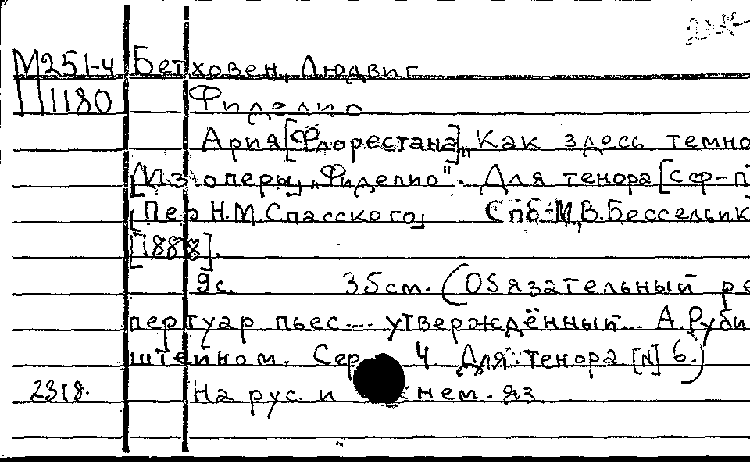 М251-4 Бетховен, Людвиг
П1180 Фиделио
Ария [Флорестана] „Как здесь темно
[Из оперы] „Фиделио". Для тенора [с ф-п]
[Пер. Н.М.Спасского] Спб-М, В.Бессель и К
[1888].
9с. 35см. (Обязательный ре
пертуар пьес... утверждённый... А.Руби
штейном. Сер. 4. Для тенора [N] 6.)
2318. На рус. и нем. яз